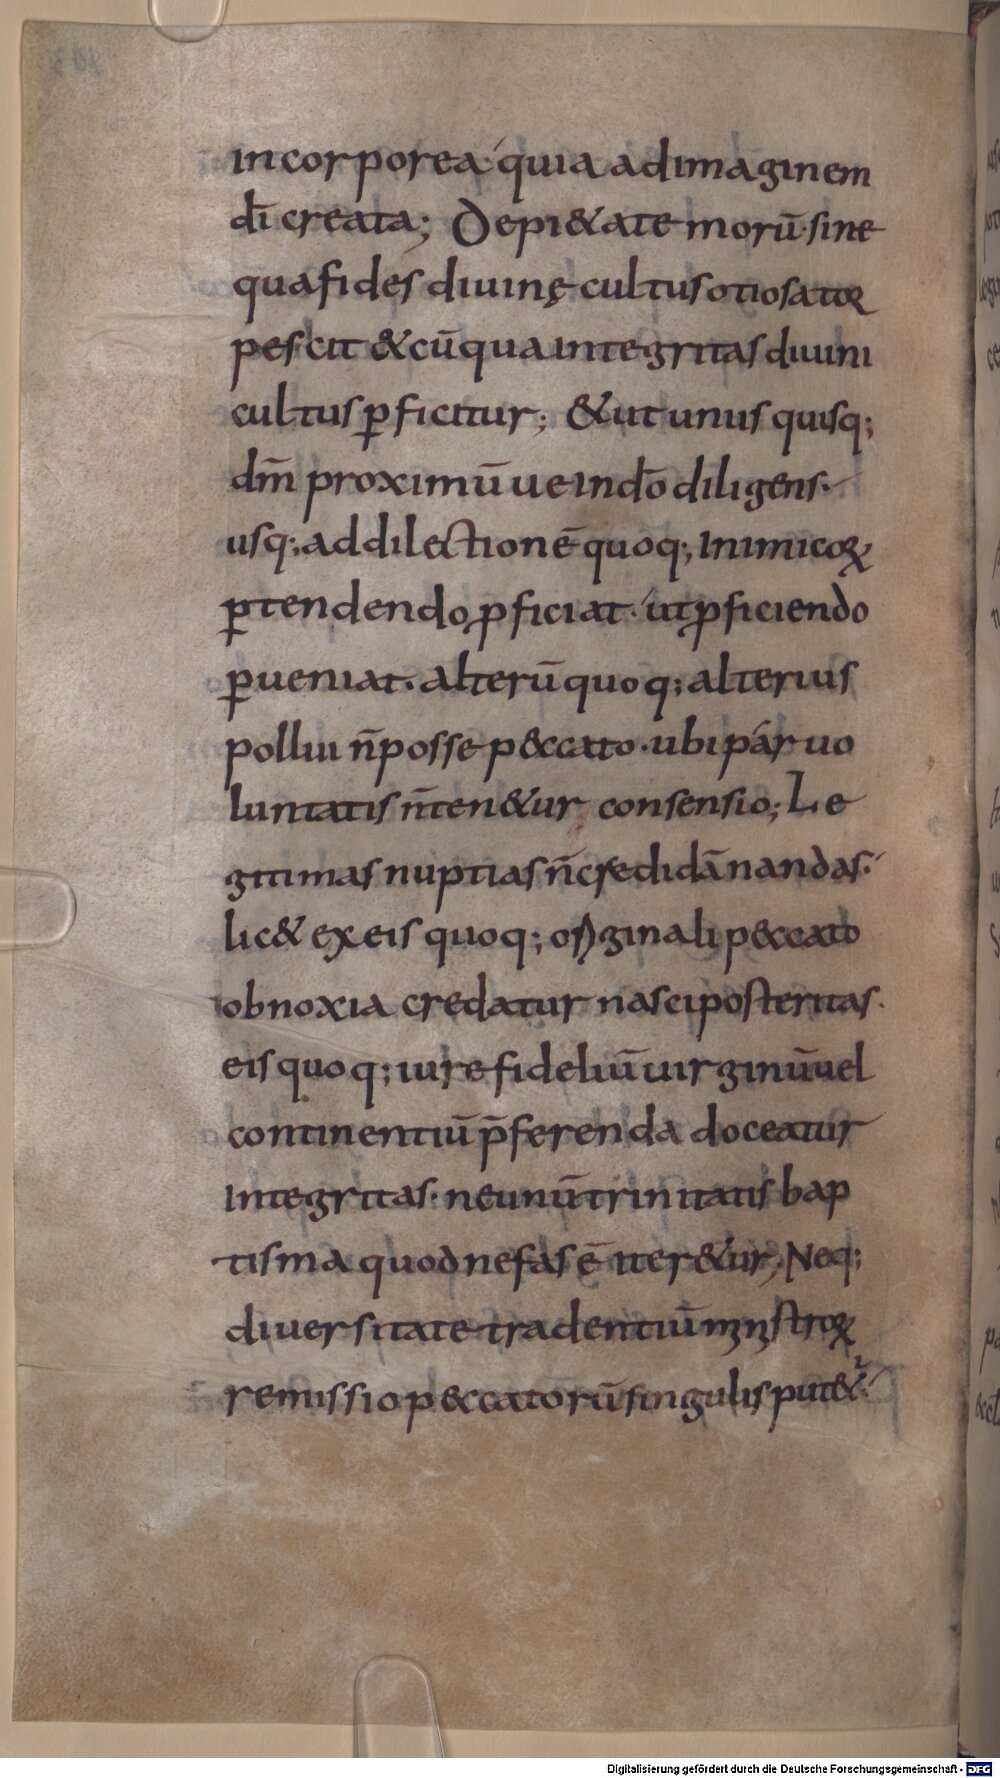 incorporea·quia adimaginem
dī creata; Depi&ate morū·sine
qua fides diuinę cultus otiosa torꝝ
pescit &cūqua integritas diuini
cultus ꝑficitur; &ut unus quisq;
dm̄ proximū ue indō diligens·
usq; addilectionē quoq; inimicoꝝ
ꝑtendendo ꝓficiat· ut ꝓficiendo
ꝑueniat· alterū quoq; alterius
pollui n̄posse peccato·ubi par uo
luntatis n̄ten&ur consensio; Le
gitimas nuptias n̄credidānandas·
lic& ex eis quoq; originali peccato
obnoxia credatur nasci posteritas·
eis quoq; iure fideliū uirginū uel
continentiū p̄ferenda doceatur
integritas· neunū trinitatis bap
tisma quod nefas ē iter&ur; Neq;
diuersitate tradentiū ministroꝝ
remissio peccatorū singulis put&ur·
Digitalisierung gefördert durch die Deutsche Forschungsgemeinschaft - DFG